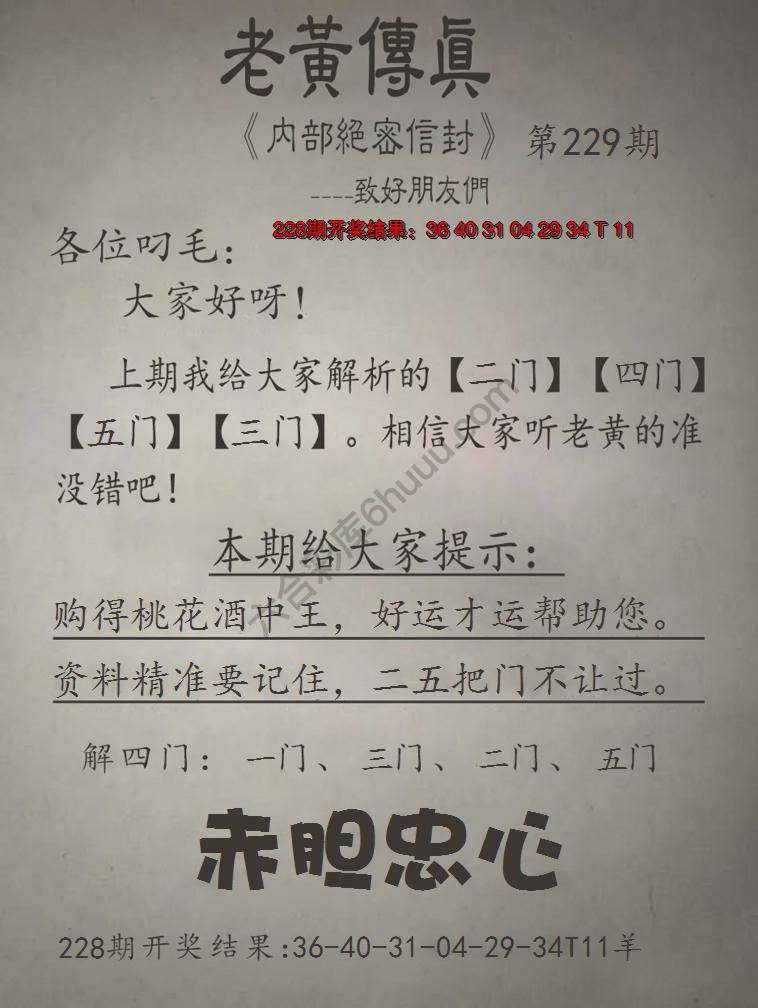 老黃傳眞
《内部絕密信封》 第229期
----致好朋友們
228期开奖结果：36 40 31 04 29 34 T 11
各位叼毛：
大家好呀！
上期我给大家解析的【二门】【四门】
【五门】【三门】。相信大家听老黄的准
没错吧！
六合彩库6huuu.com
本期给大家提示：
购得桃花酒中王，好运才运帮助您。
资料精准要记住，二五把门不让过。
解四门：一门、三门、二门、五门
赤胆忠心
228期开奖结果:36-40-31-04-29-34T11羊